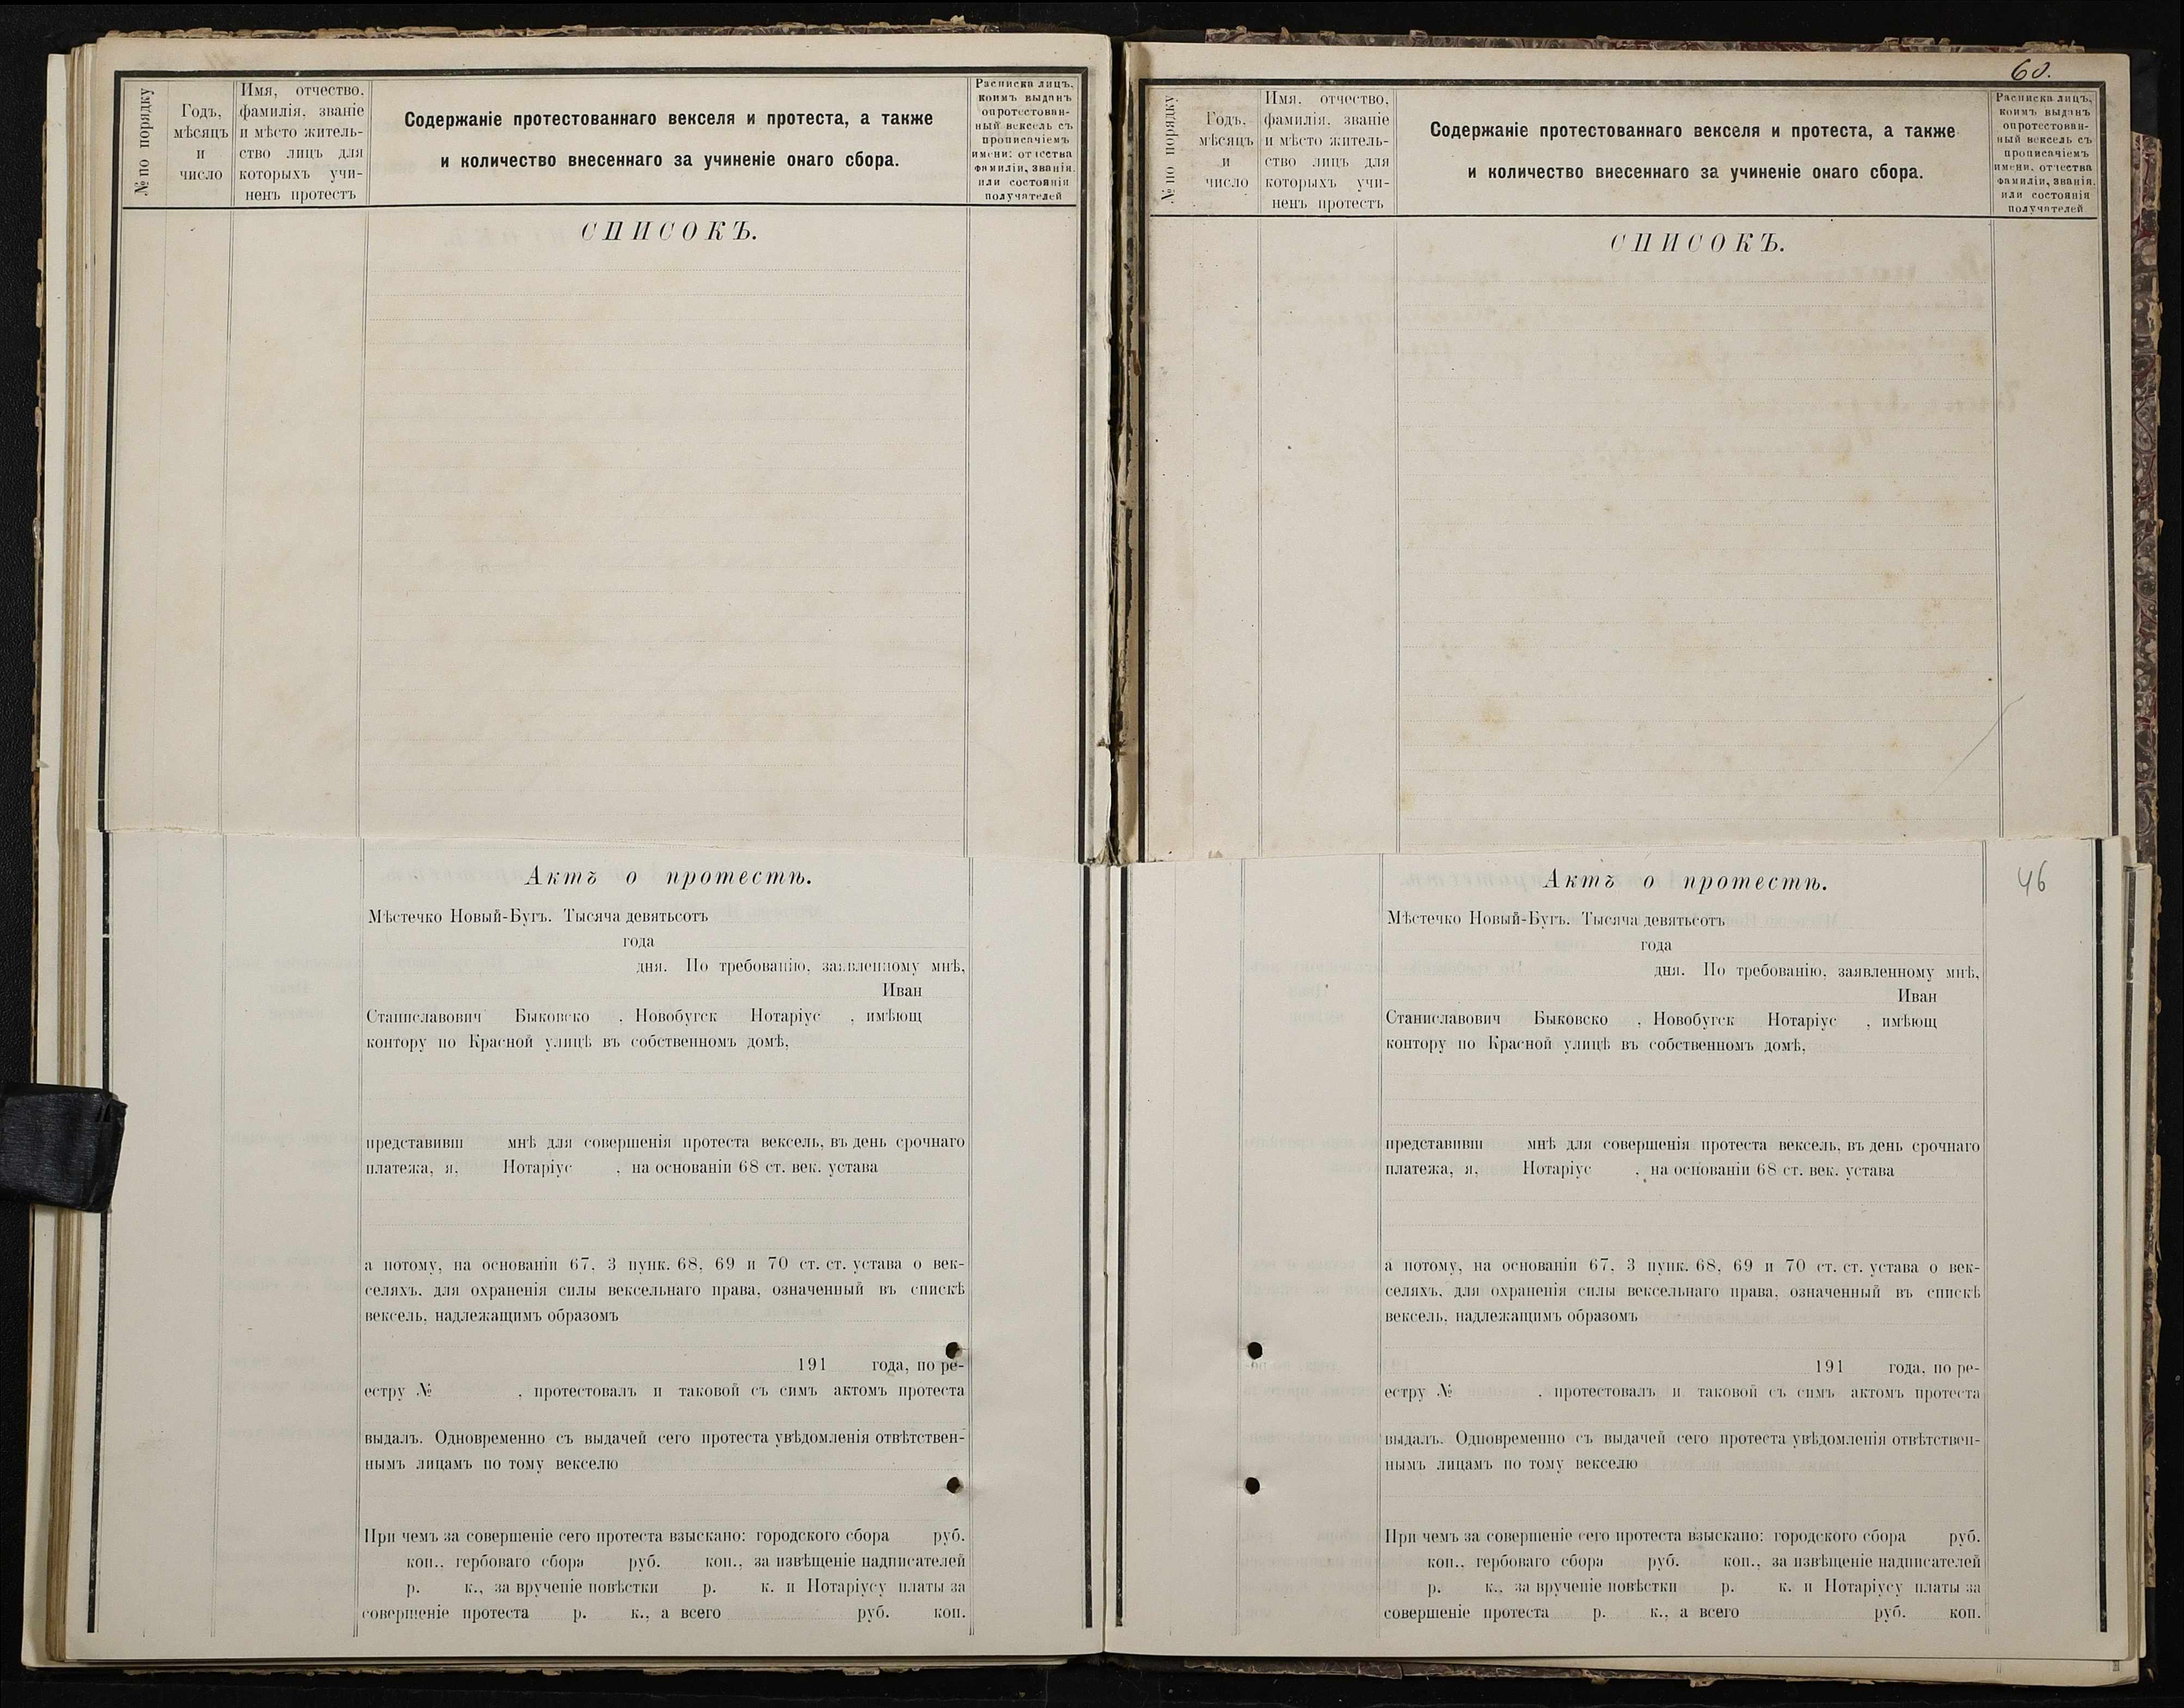 № по порядку
Годъ,
мѣсяцъ
и
число
Имя, отчество,
фамилія, званіе
и мѣсто житель-
ство лицъ для
которыхъ учи-
ненъ протестъ
Содержаніе протестованнаго векселя и протеста, а также
и количество внесеннаго за учиненіе онаго сбора.
Расписка лицъ,
коимъ выданъ
опротестован-
ный вексель съ
прописаніемъ
имени, отчества
фамиліи, званія
или состоянія
получателей
СПИСОКЪ.
Актъ о протестѣ.
Мѣстечко Новый-Бугъ. Тысяча девятьсотъ
года
дня. По требованію, заявленному мнѣ,
Иван
Станиславович Быковско , Новобугск Нотаріус , имѣющ
контору по Красной улицѣ въ собственномъ домѣ,
представивш мнѣ для совершенія протеста вексель, въ день срочнаго
платежа, я, Нотаріус , на основаніи 68 ст. век. устава
а потому, на основаніи 67, 3 пунк. 68, 69 и 70 ст. ст. устава о век-
селяхъ, для охраненія силы вексельнаго права, означенный въ спискѣ
вексель, надлежащимъ образомъ
191 года, по ре-
естру № , протестовалъ и таковой съ симъ актомъ протеста
выдалъ. Одновременно съ выдачей сего протеста увѣдомленія отвѣтствен-
нымъ лицамъ по тому векселю
При чемъ за совершеніе сего протеста взыскано: городского сбора руб.
коп., гербоваго сбора руб. коп., за извѣщеніе надписателей
р. к., за врученіе повѣстки р. к. и Нотаріусу платы за
совершеніе протеста р. к., а всего руб. коп.
60.
№ по порядку
Годъ,
мѣсяцъ
и
число
Имя, отчество,
фамилія, званіе
и мѣсто житель-
ство лицъ для
которыхъ учи-
ненъ протестъ
Содержаніе протестованнаго векселя и протеста, а также
и количество внесеннаго за учиненіе онаго сбора.
Расписка лицъ,
коимъ выданъ
опротестован-
ный вексель съ
прописаніемъ
имени, отчества
фамиліи, званія,
или состоянія
получателей
СПИСОКЪ.
46
Актъ о протестѣ.
Мѣстечко Новый-Бугъ. Тысяча девятьсотъ
года
дня. По требованію, заявленному мнѣ,
Иван
Станиславович Быковско , Новобугск Нотаріус , имѣющ
контору по Красной улицѣ въ собственномъ домѣ,
представивш мнѣ для совершенія протеста вексель, въ день срочнаго
платежа, я, Нотаріус , на основаніи 68 ст. век. устава
а потому, на основаніи 67, 3 пунк. 68, 69 и 70 ст. ст. устава о век-
селяхъ, для охраненія силы вексельнаго права, означенный въ спискѣ
вексель, надлежащимъ образомъ
191 года, по ре-
естру № , протестовалъ и таковой съ симъ актомъ протеста
выдалъ. Одновременно съ выдачей сего протеста увѣдомленія отвѣтствен-
нымъ лицамъ по тому векселю
При чемъ за совершеніе сего протеста взыскано: городского сбора руб.
коп., гербоваго сбора руб. коп., за извѣщеніе надписателей
р. к., за врученіе повѣстки р. к. и Нотаріусу платы за
совершеніе протеста р. к., а всего руб. коп.